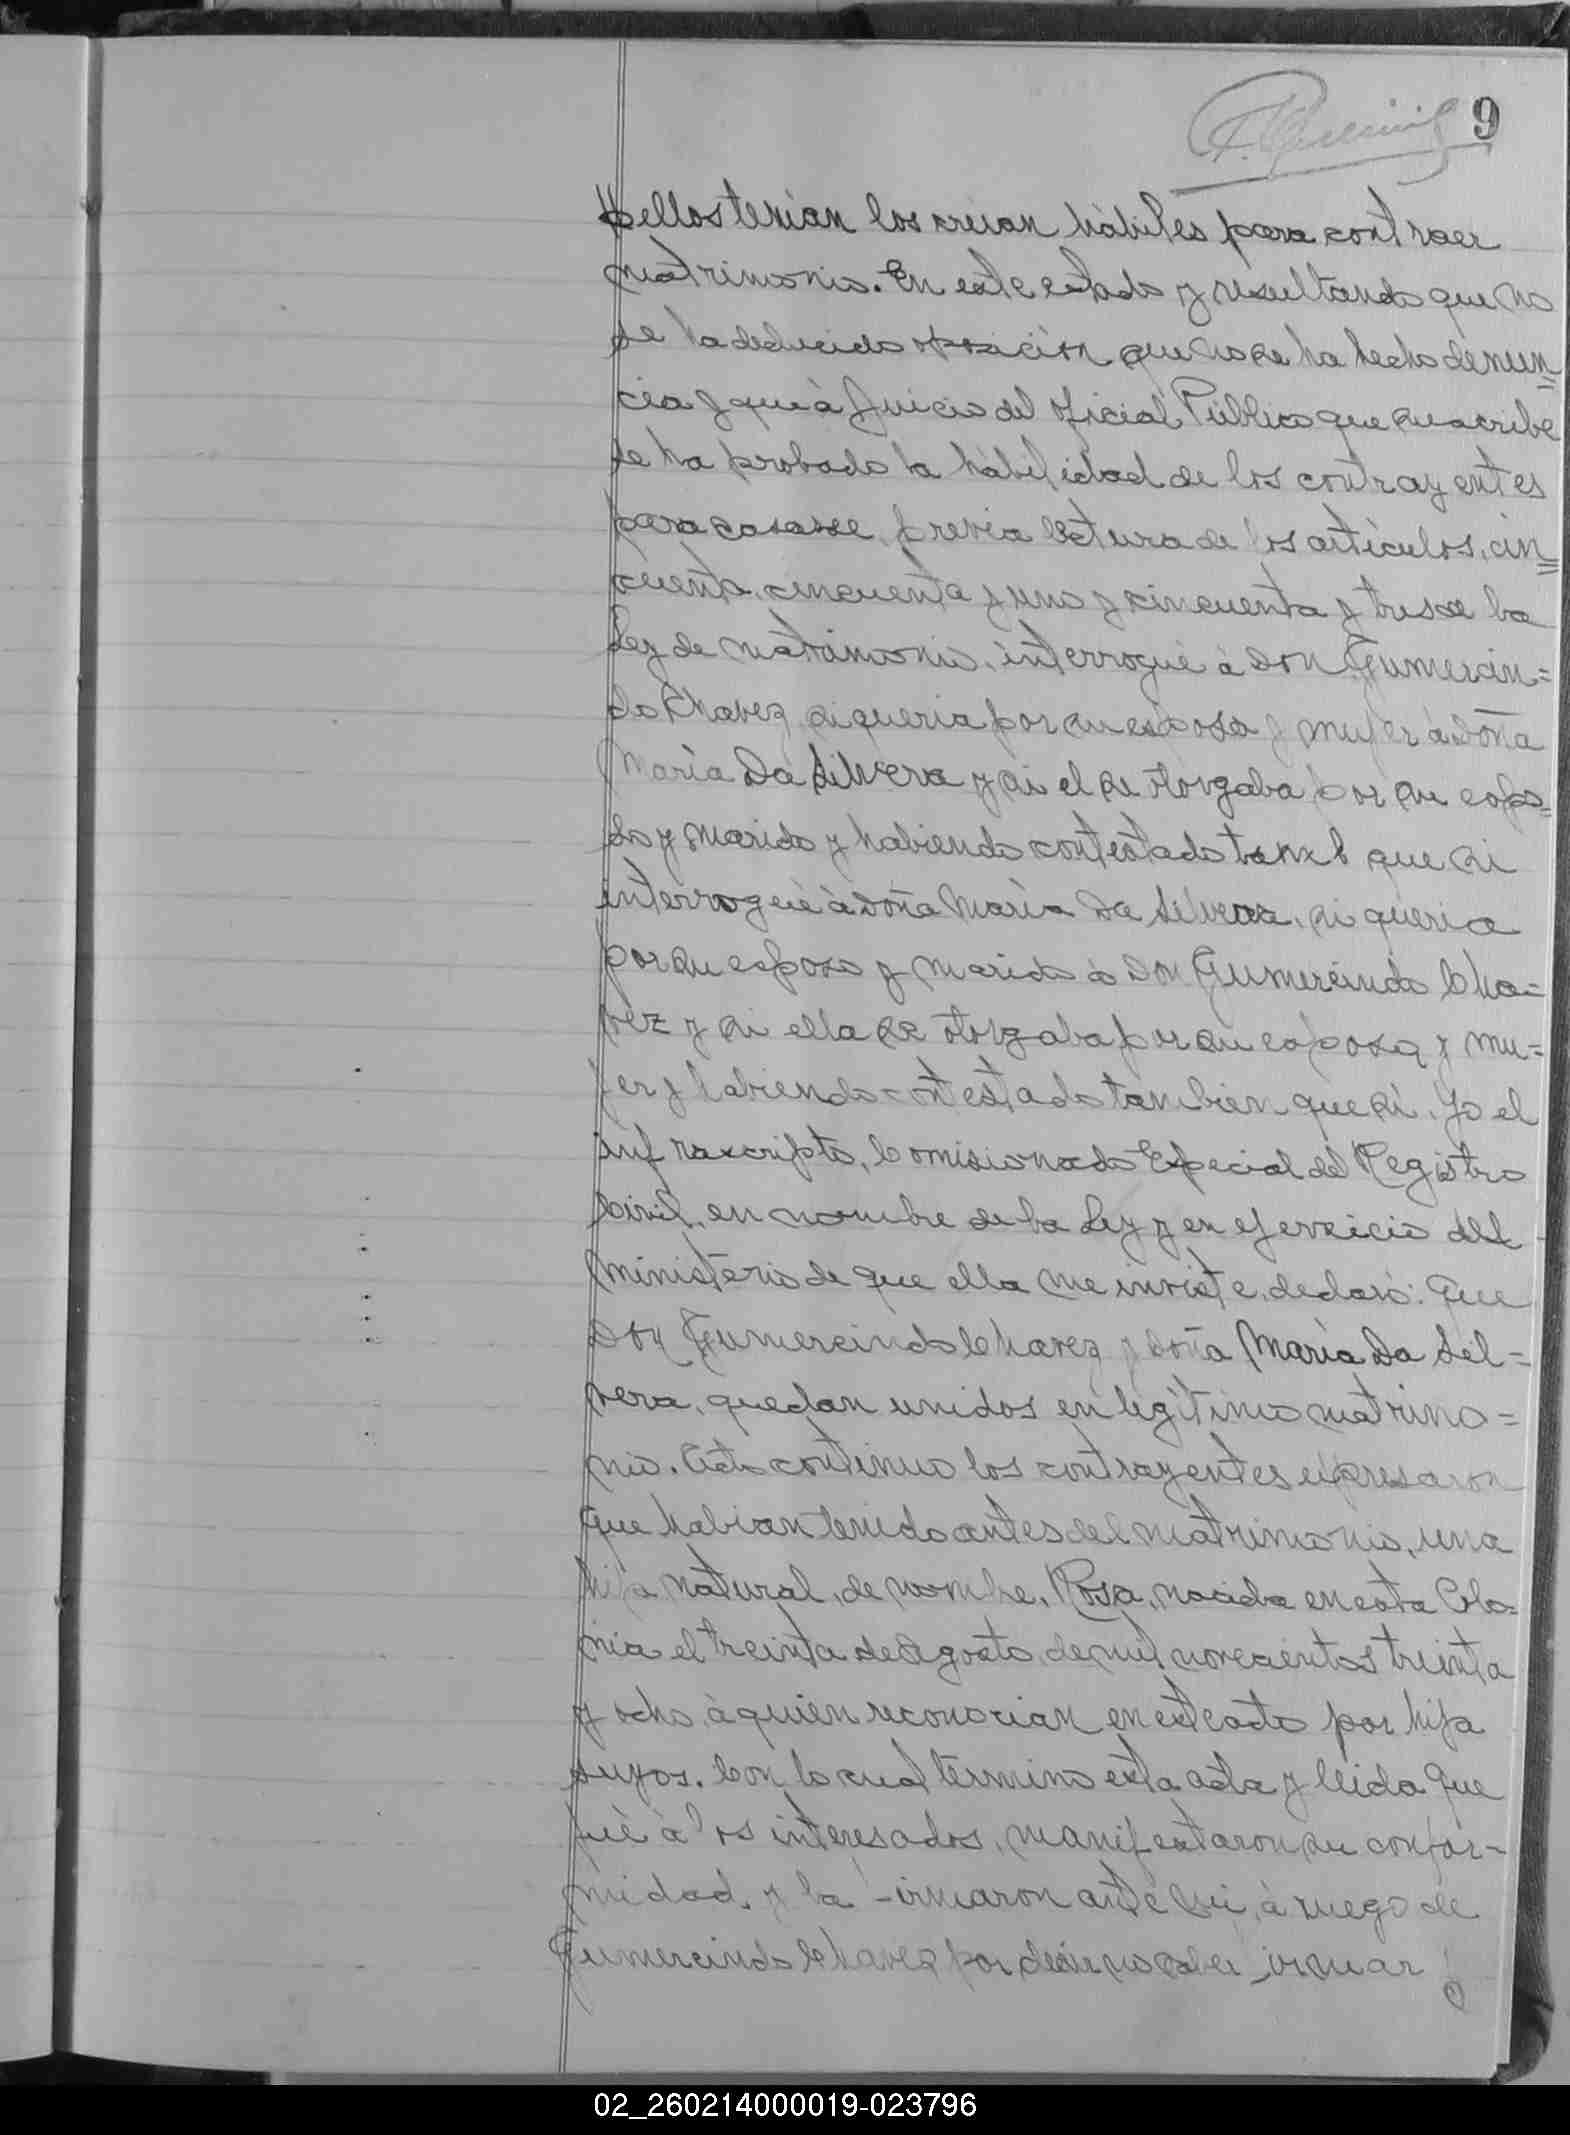 9
ellos tenían los creían hábiles para contraer
matrimonio. En este estado y resultando que no
se ha deducido oposición que no se ha hecho denun=
cia y que à juicio del oficial Público que suscribe
se ha probado la habilidad de los contrayentes
para casarse, previa lectura de los artículos, cin=
cuenta, cincuenta y uno y cincuenta y tres de la
Ley de matrimonio, interrogué à Don Gumercin=
do Chavez, si queria por su esposa y mujer à Doña
María Da Silvera y si el se otorgaba por su espo=
so y marido y habiendo contestado que si
interrogué à Doña María Da Silvera, si queria
por su esposo y marido à Don Gumercindo Cha=
vez y si ella se otorgaba por su esposa y mu=
jer y habiendo contestado tambien que si. Yo el
infrascripto, Comisionado Especial del Registro
Civil, en nombre de la Ley y en ejercicio del
ministerio de que ella me inviste, declaro: Que
Don Gumercindo Chavez y Doña María Da Sil=
vera, quedan unidos en legítimo matrimo=
nio. Acto continuo los contrayentes expresaron
que habian tenido antes del matrimonio, una
hija natural, de nombre, Rosa, nacida en esta Colo=
nia el treinta de Agosto de mil novecientos treinta
y ocho, à quien reconocian en este acto por hija
suyos. Con lo cual termino esta acta y leida que
fué à los interesados, manifestaron su confor=
midad, y la firmaron ante mi, à ruego de
Gumercindo Chavez por decir no saber firmar
02_260214000019-023796